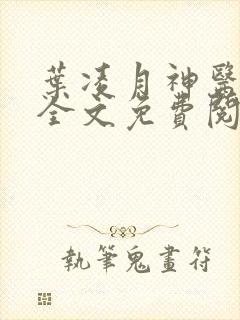 葉凌月神醫
全文免費閱
執筆鬼畫符